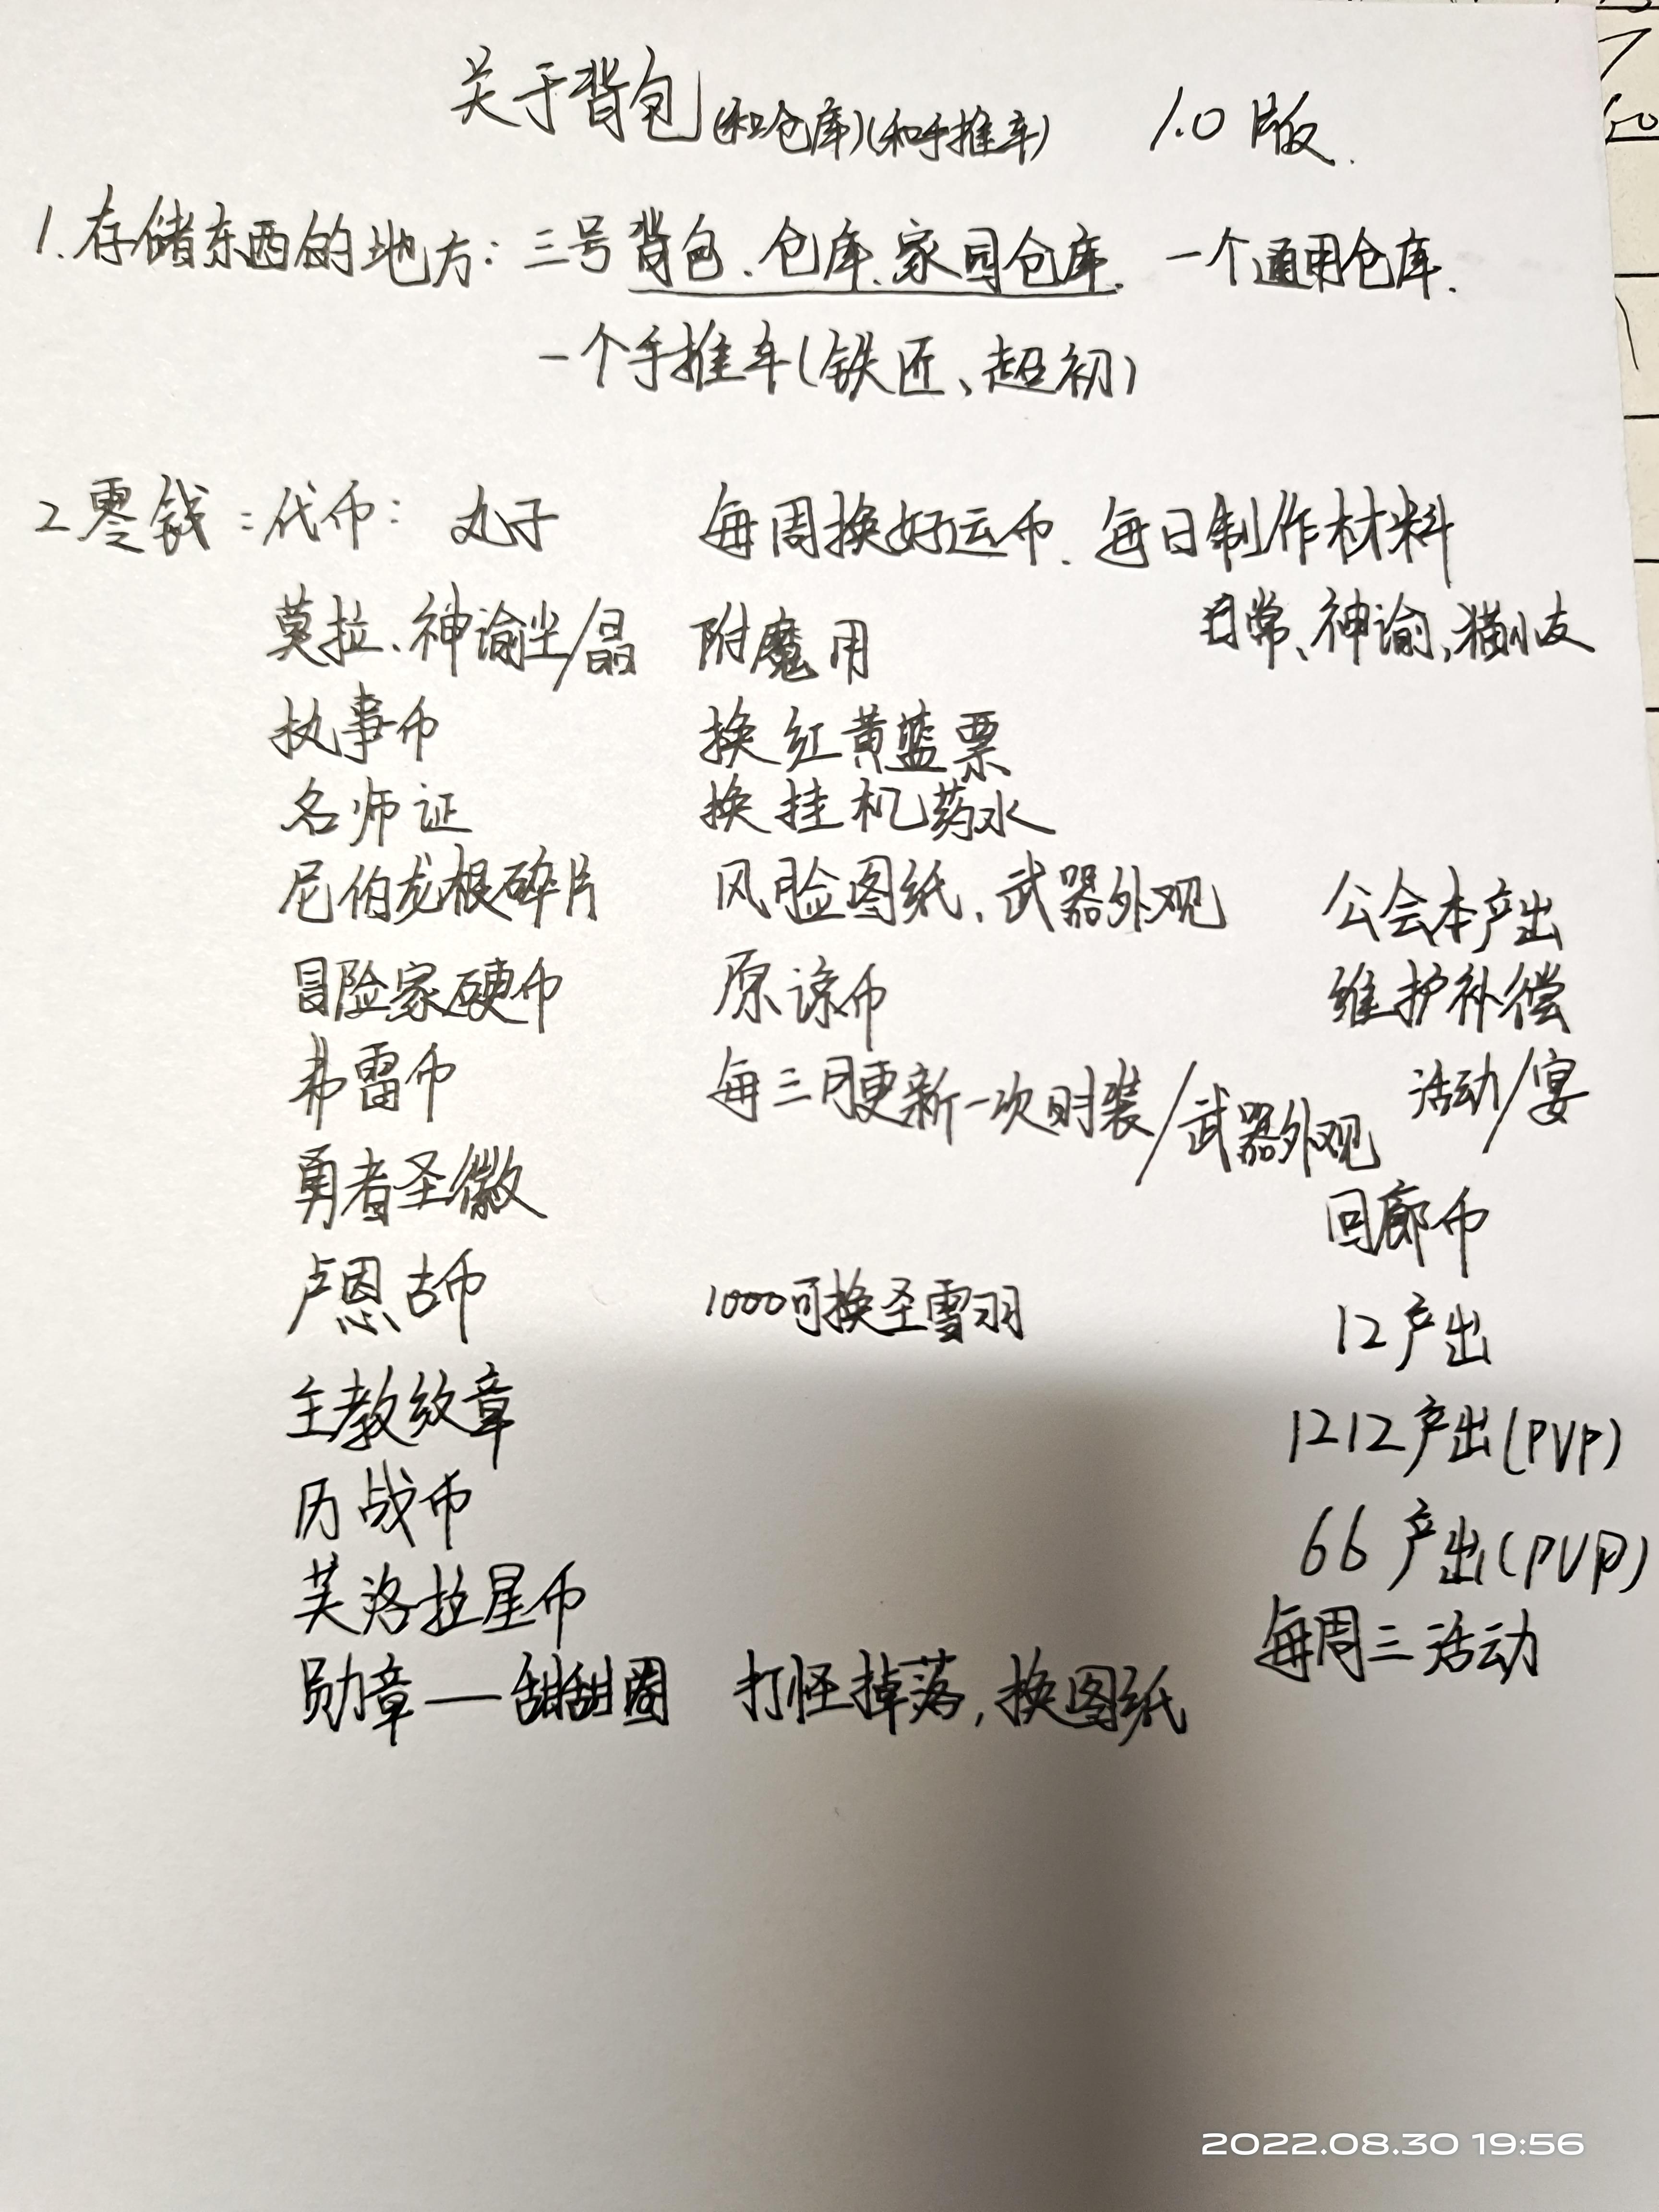 关于背包(和仓库)(和手推车) 1.0版.
1.存储东西的地方:三号背包、仓库、家园仓库. 一个通用仓库.
一个手推车(铁匠、超初)
2零钱:代币: 丸子 每周换好运币、每日制作材料
莫拉、神谕尘/晶 附魔用 日常、神谕、猫小友
执事币 换红黄蓝票
名师证 换挂机药水
尼伯龙根碎片 风脸图纸、武器外观 公会本产出
冒险家硬币 原谅币 维护补偿
弗雷币 每三月更新一次时装/武器外观 活动/宴
勇者圣徽 回廊币
卢恩古币 1000可换圣雪羽 12产出
主教纹章 1212产出(PVP)
历战币 66产出(PVP)
芙洛拉星币 每周三活动
勋章——甜甜圈 打怪掉落,换图纸
2022.08.30 19:56